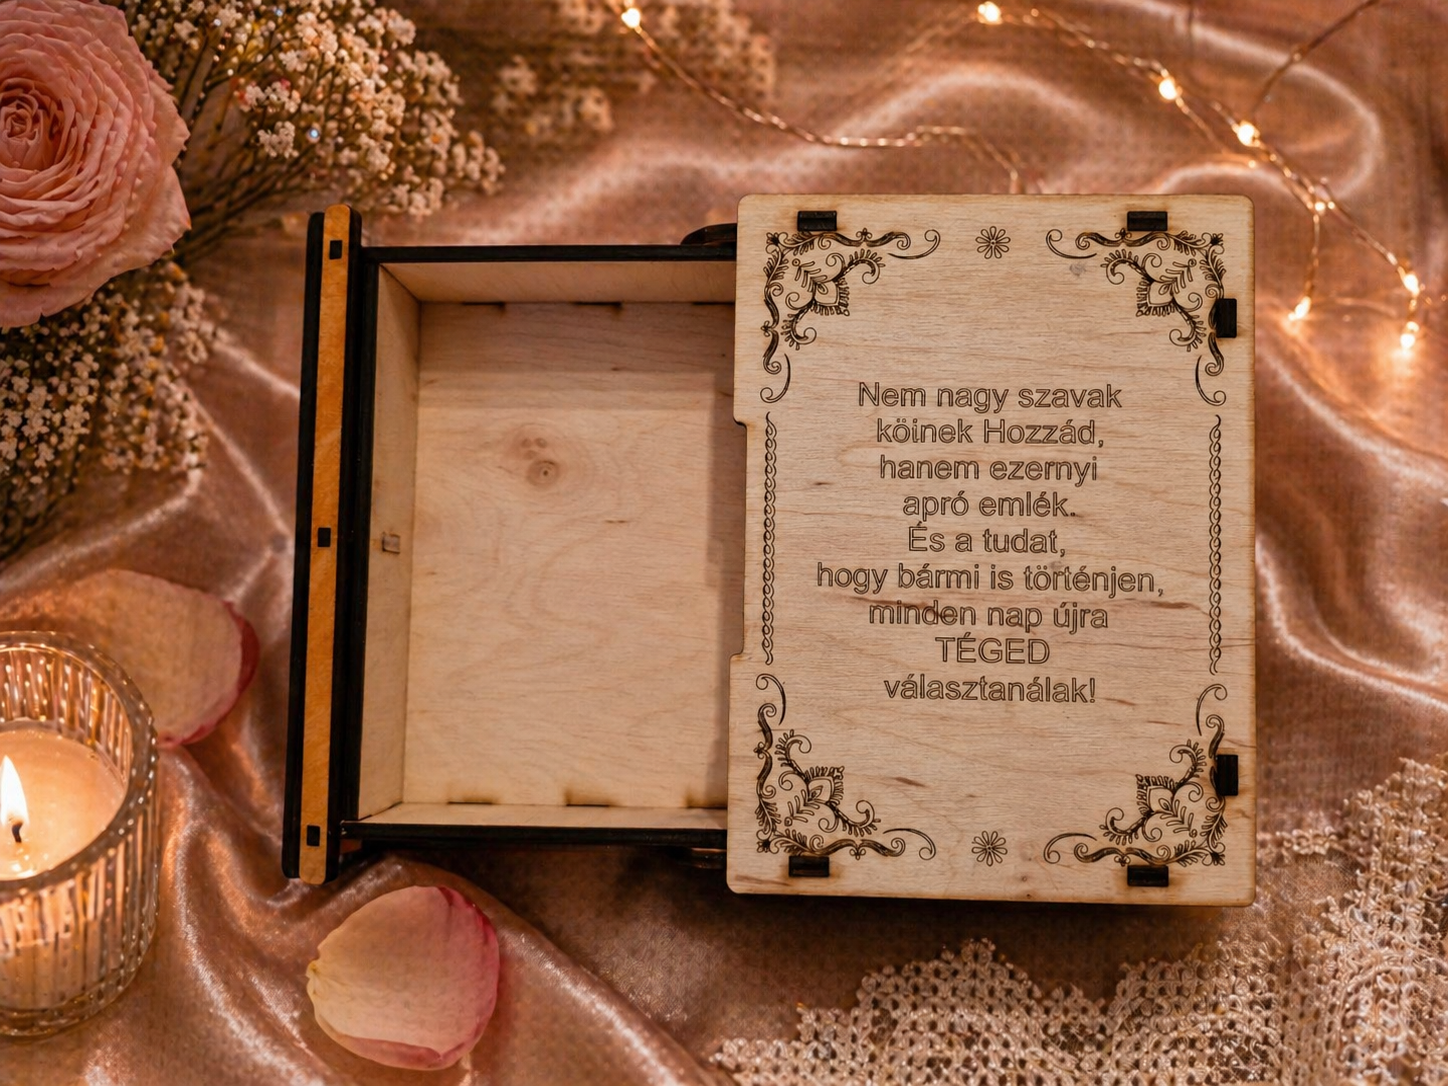 Nem nagy szavak
köinek Hozzád,
hanem ezernyi
apró emlék.
És a tudat,
hogy bármi is történjen,
minden nap újra
TÉGED
választanálak!